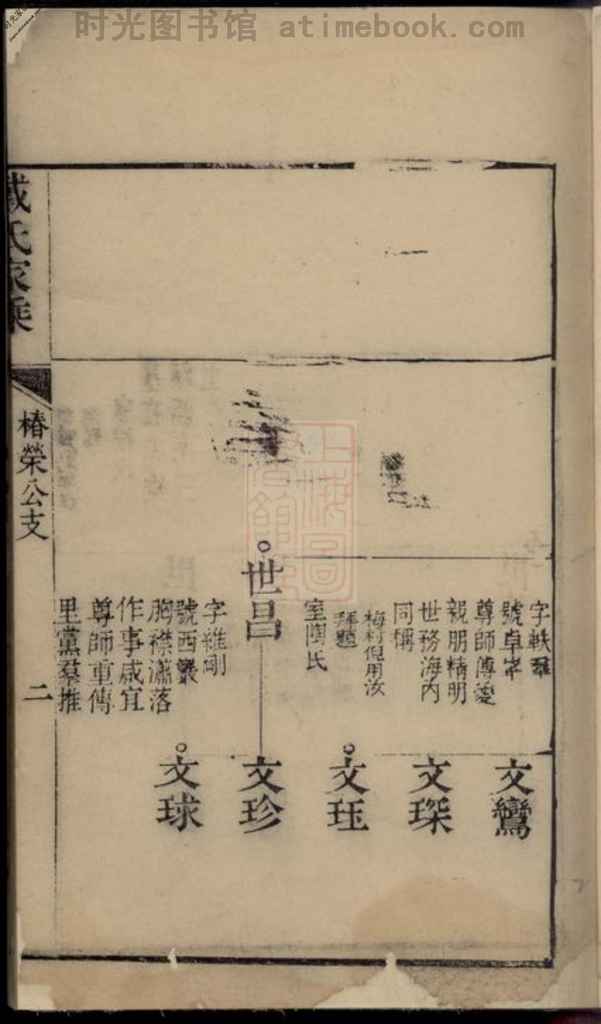 时光图书馆 atimebook.com
字軼羣
號卓峯
尊師傅愛
親朋精明
世務海内
同稱
梅村倪用汝
拜題
室陶氏
文鸞
文琛
文珏
世昌
文珍
字維剛
號西巖
胸襟瀟落
作事咸宜
尊師重傅
里黨羣推
文球
戴氏家乘
椿榮公支
二